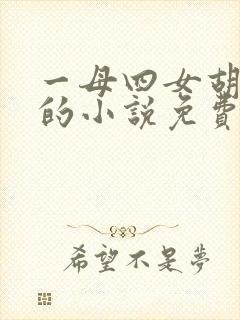 一母四女胡
的小說免費
希望不是夢